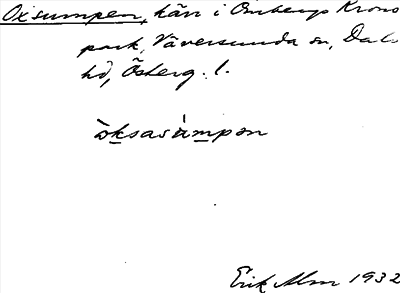 Oxsumpen, kärr i Ombergs Krono
park, Väversunda sn, Dals
hd, Österg. l.
òksasám̲pən
Erik Alm 1932